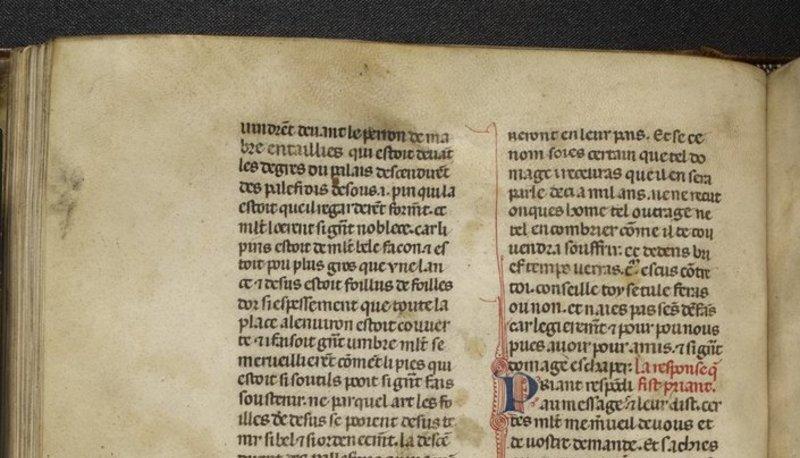 uindrēt deuant le perron de ma
bre entaillies qui estoit deuāt
les degres du palais descendirēt
des palefrois desous .i. pin qui la
estoit que il regarderēt formt. et
mlt loerent si gñt noblece. car li
pins estoit de mlt bele facon ⁊ es
toit pou plus gros que vne lan
ce ⁊ desus estoit foillus de foilles
dor si espessement que toute la
place a lenuiron estoit couuer
te ⁊ i fausoit gñt umbre mlt se
merueillierēt cōmēt li pies qui
estoit si soutils pooit si gñt fais
soustenir. ne par quel art les fo
illes de desus se pooient desus te
nir si bel ⁊ si ordenecemt. la descē
neront en leur pais. Et se ce
non soies certain que tel do
mage i receuras que il en sera
parle deci a mil ans. ne ne recut
onques home tel outrage ne
tel encombrier cōme il te cou
uendra souffrir. et dedens bri
ef temps verras. escus cōtre
toi. conseille toy se tu le feras
ou non. et naies pas ses defāis
car legieremt ⁊ pour pou nous
pues auoir pour amis. ⁊ si gñt
domage eschaper. la response q̄
Priant respōdi fist priant.
au message ⁊ leur dist. cer
tes mlt me meruueil de uous et
de uostre demande. Et sachies